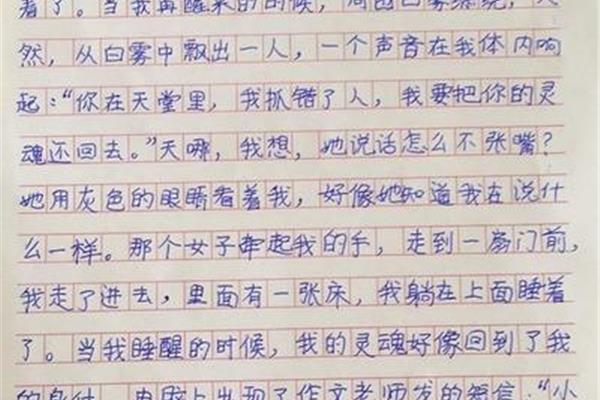 着了。当我再醒来的时候，周围白雾缭绕，
然，从白雾中飘出一人，一个声音在我体内响
起：“你在天堂里，我抓错了人，我要把你的灵
魂还回去。”天哪，我想，她说话怎么不张嘴？
她用灰色的眼睛看着我，好像她知道我在说什
么一样。那个女子牵起我的手，走到一扇门前，
我走了进去，里面有一张床，我躺在上面睡着
了。当我睡醒的时候，我的灵魂好像回到了我
的身体，电脑上出现了作文老师发的短信：“小